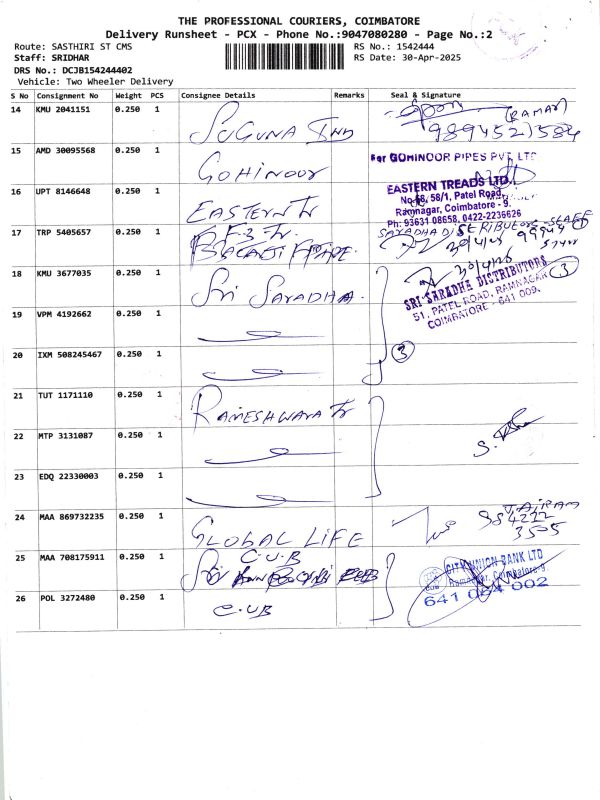 THE PROFESSIONAL COURIERS, COIMBATORE
Delivery Runsheet - PCX - Phone No.:9047080280 - Page No.:2
Route: SASTHIRI ST CMS
RS No.: 1542444
Staff: SRIDHAR
RS Date: 30-Apr-2025
DRS No.: DCJB154244402
Vehicle: Two Wheeler Delivery
S No Consignment No Weight PCS Consignee Details Remarks Seal & Signature
14 KMU 2041151 0.250 1 SUGUNA Ind (RAMAR)
9894527584
15 AMD 30095568 0.250 1 GOHINOOR For GOHINOOR PIPES PVT. LTD
16 UPT 8146648 0.250 1 EASTERN Tr
EASTERN TREADS LTD.,
No.48, 58/1, Patel Road,
Ramnagar, Coimbatore - 9.
Ph: 93631 08658, 0422-2236626
17 TRP 5405657 0.250 1 F-3 Tr
18 KMU 3677035 0.250 1 Sri SARADHA
30/4/25
3
SRI SARADHA DISTRIBUTORS
51, PATEL ROAD, RAMNAGAR
COIMBATORE - 641 009.
19 VPM 4192662 0.250 1
20 IXM 508245467 0.250 1 3
21 TUT 1171110 0.250 1 RAMESHWARA Tr
22 MTP 3131087 0.250 1
23 EDQ 22330003 0.250 1
24 MAA 869732235 0.250 1 GLOBAL LIFE VAIRAM
984222
3505
25 MAA 708175911 0.250 1 C.U.B
CITY UNION BANK LTD
Ramnagar, Coimbatore-9.
26 POL 3272480 0.250 1 C.UB